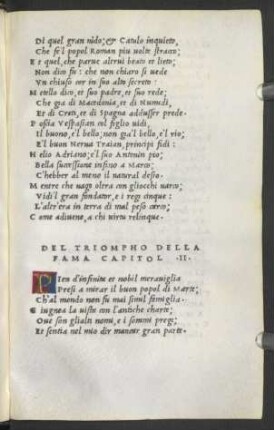 Di quel gran nido; et Catulo inquieto,
Che fe'l popol Roman piu uolte stanco;
E t quel, che parue altrui beato et lieto;
Non dico fu: che non chiaro si uede
Vn chiuso cor in suo alto secreto:
M etello dico, et suo padre, et suo rede;
Che gia di Macedonia, et di Numidi,
Et di Creta, et di Spagna addusser prede.
P oscia Vespasian col figlio uidi,
Il buono, e'l bello; non gia'l bello, e'l rio;
E'l buon Nerua Traian, principi fidi:
H elio Adriano; e'l suo Antonin pio;
Bella successione infino a Marco;
C'hebber al meno il natural desio.
M entre che uago oltra con gliocchi uarco;
Vidi'l gran fondator, e i regi cinque:
L'altr'era in terra di mal peso carco;
C ome adiuene, a chi uirtu relinque.
DEL TRIOMPHO DELLA
FAMA CAPITOL .II.
PIen d'infinita et nobil merauiglia
Presi a mirar il buon popol di Marte;
Ch'al mondo non fu mai simil famiglia.
G iugnea la uista con l'antiche charte;
Oue son glialti nomi, e i sommi pregi;
Et sentia nel mio dir mancar gran parte.